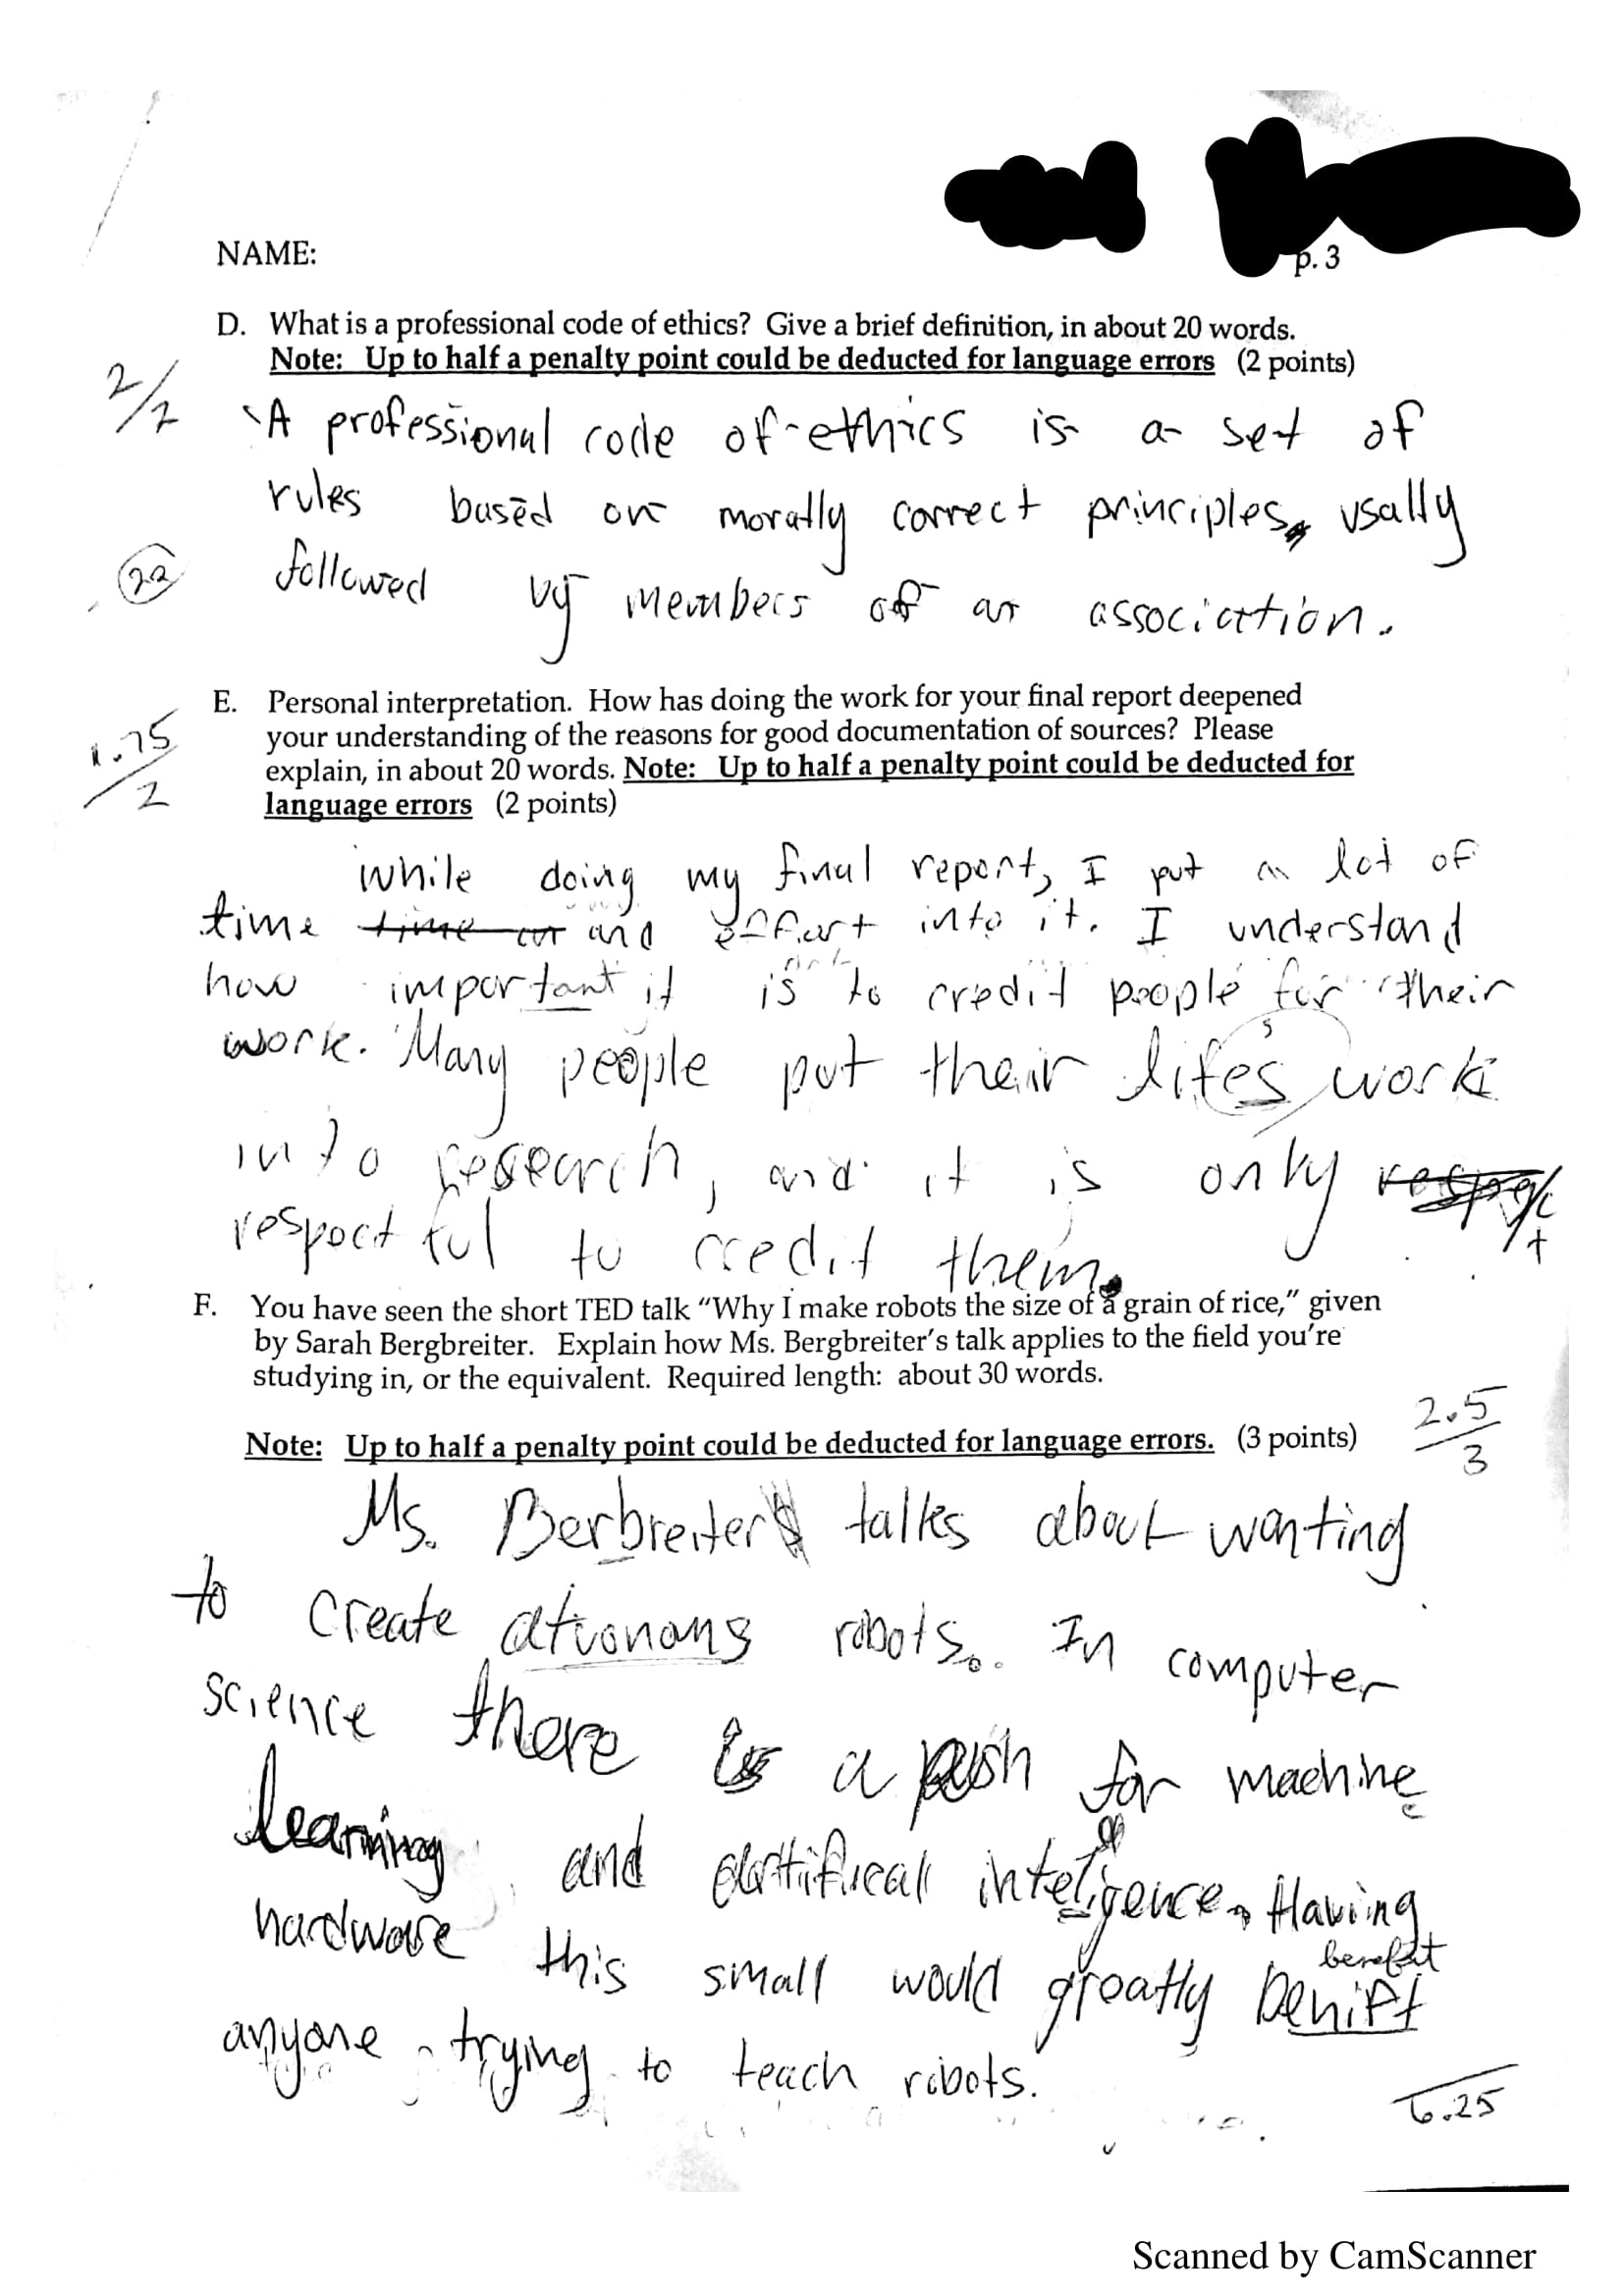 NAME:
p. 3
D. What is a professional code of ethics? Give a brief definition, in about 20 words.
Note: Up to half a penalty point could be deducted for language errors (2 points)
2/2
A professional code of ethics is a set of
rules based on morally correct principles, usally
22
followed by members of an association.
E. Personal interpretation. How has doing the work for your final report deepened
your understanding of the reasons for good documentation of sources? Please
explain, in about 20 words. Note: Up to half a penalty point could be deducted for
language errors (2 points)
1.75/2
While doing my final report, I put a lot of
time time and effort into it. I understand
how important it is to credit people for their
work. Many people put their lifes work
into research, and it is only
respectful to credit them.
F. You have seen the short TED talk “Why I make robots the size of a grain of rice,” given
by Sarah Bergbreiter. Explain how Ms. Bergbreiter’s talk applies to the field you’re
studying in, or the equivalent. Required length: about 30 words.
2.5/3
Note: Up to half a penalty point could be deducted for language errors. (3 points)
Ms. Berbreiter talks about wanting
to create robots. In computer
science there is a push for machine
learning and artifical inteligence. Having
hardware this small would greatly benift
benefit
anyone trying to teach robots.
6.25
Scanned by CamScanner